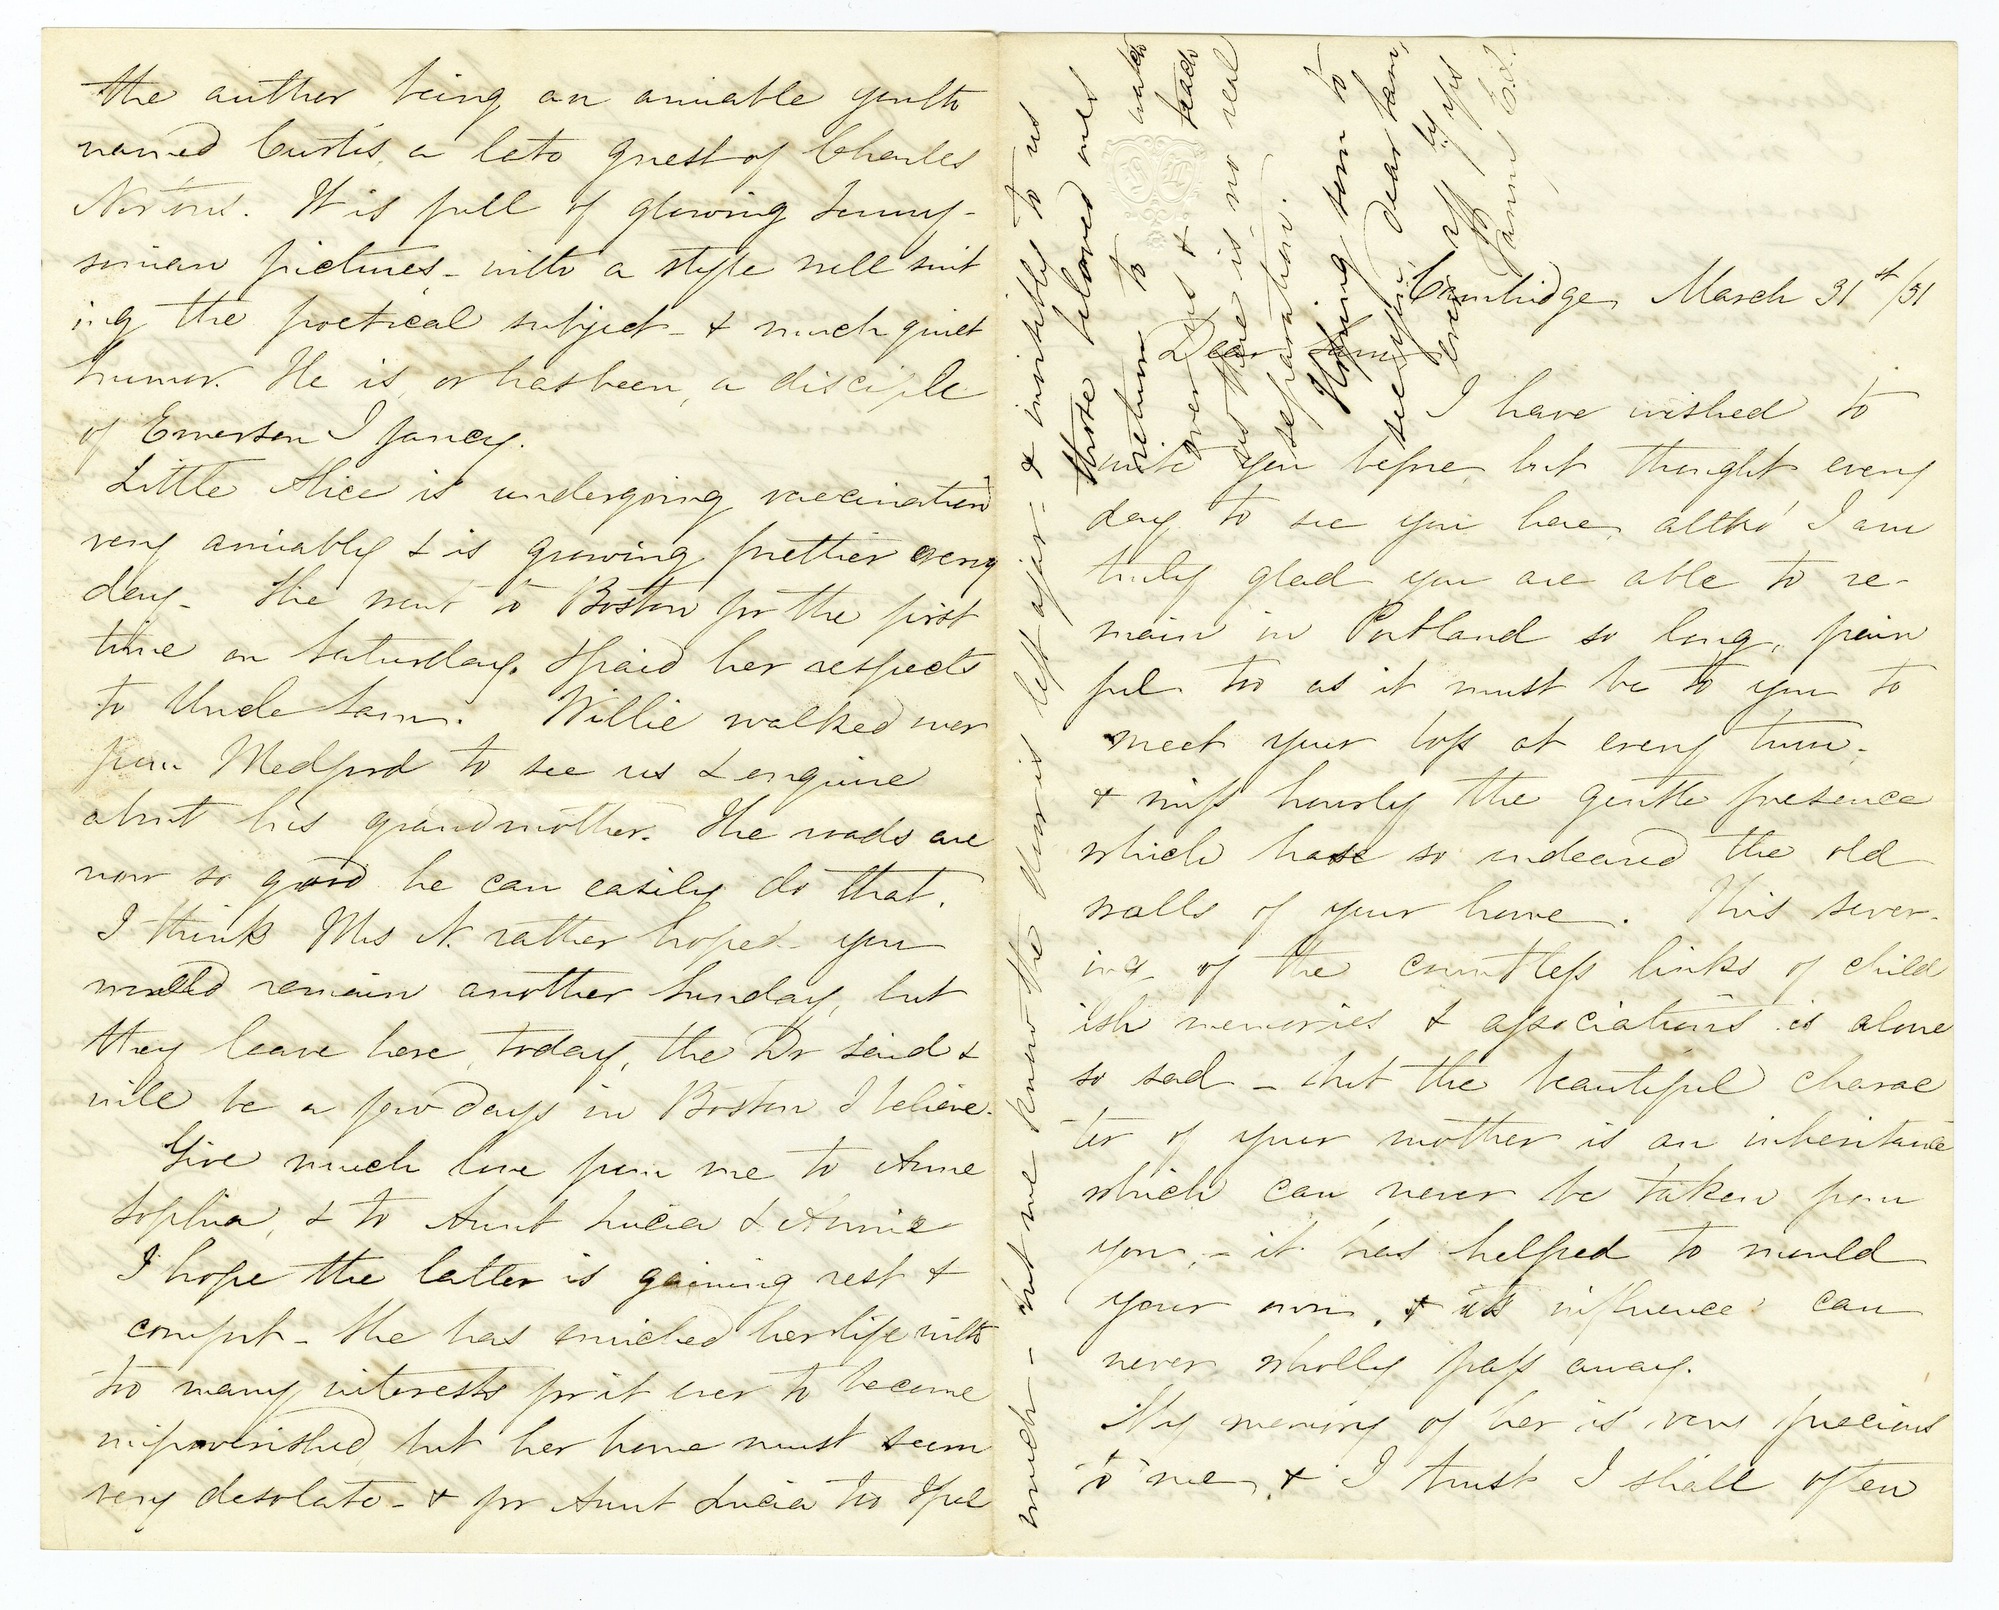 the author being an amiable youth
named Curtis, a late guest of Charles
Norton's. It is full of glowing Tenny-
sonian pictures - with a style well suit
ing the poetical subject - & much quiet
humor. He is, or has been, a disciple
of Emerson I fancy.
Little Alice is undergoing vaccination
very amiably & is growing prettier every
day - She went to Boston for the first
time on Saturday, & paid her respects
to Uncle Sam. Willie walked over
from Medford to see us & enquire
about his grandmother. The roads are
now so good he can easily do that.
I think Mrs N. rather hoped you
would remain another Sunday, but
they leave here today, the Dr said &
will be a few days in Boston I believe.
Give much love from me to Anne
Sophia, & to Aunt Lucia & Annie
I hope the latter is gaining rest &
comfort - She has enriched her life with
too many interests for it ever to become
impoverished, but her home must seem
very desolate - & for Aunt Lucia too I feel
much - but we know the door is left ajar - & invisibly to us
those beloved ones
return to watch
over us & teach
us there is no real
separation.
Hoping soon to
see you, dear Sam,
ever affly yrs
Fannie E. L.
Cambridge March 31st/51
Dear Sam,
I have wished to
write you before, but thought every
day to see you here, altho' I am
truly glad you are able to re-
main in Portland so long, pain
ful too as it must be to you to
meet your loss at every turn,
& miss hourly the gentle presence
which has so endeared the old
walls of your home. This sever-
ing of the countless links of child
ish memories & associations is alone
so sad - but the beautiful charac
ter of your mother is an inheritance
which can never be taken from
you, - it has helped to mould
your own, & its influence can
never wholly pass away.
My memory of her is very precious
to me, & I trust I shall often